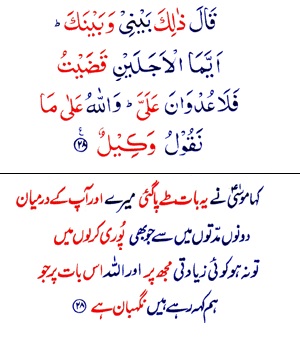 قَالَ ذٰلِكَ بَيْنِيْ وَبَيْنَكَ ؕ
اَيَّمَا الْاَجَلَيْنِ قَضَيْتُ
فَلَا عُدْوَانَ عَلَيَّ ؕ وَاللّٰهُ عَلٰى مَا
نَقُوْلُ وَكِيْلٌ ۧ ﴿۲۸﴾
کہا موسیٰؑ نے یہ بات طے پا گئی میرے اور آپ کے درمیان
دونوں مدّتوں میں سے جو بھی پُوری کرلوں میں
تو نہ ہو کوئی زیادتی مجھ پر اور اللہ اس بات پر جو
ہم کہہ رہے ہیں نگہبان ہے ﴿۲۸﴾